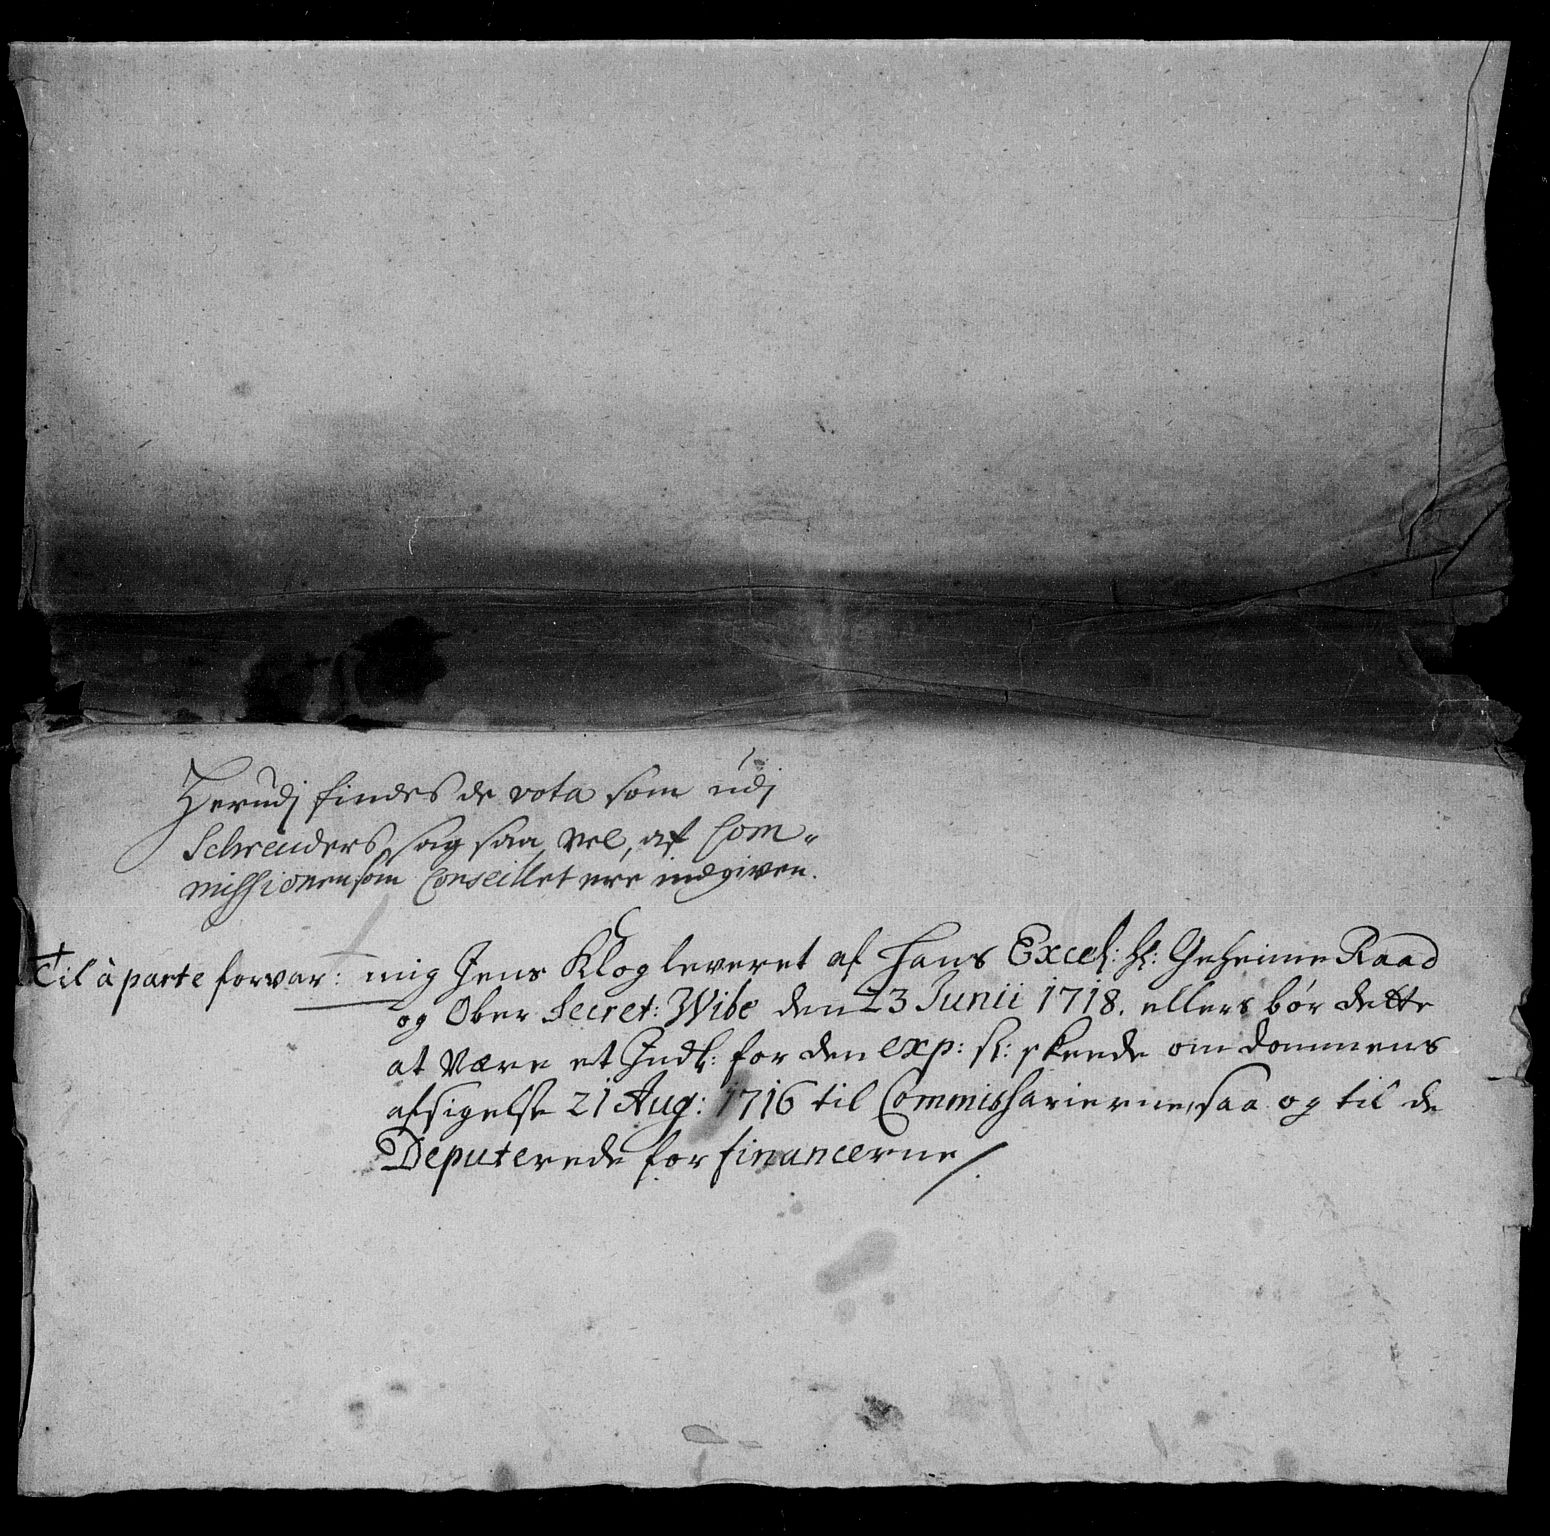 Herudj findes de vota som udj
Schreuders sag saa vel, af Com-
missionen som Conseillet ere indgiven.
Til à parte forvar: mig Jens Klog leveret af Hans Excel: Hr: Geheime Raad
og Ober Secret: Wibe den 23 Junii 1718. ellers bør dette
at være et Indl: for den exp: sl: skeede om dommens
afsigelse 21 Aug: 1716 til Commissarierne, saa og til de
Deputerede for financerne/.